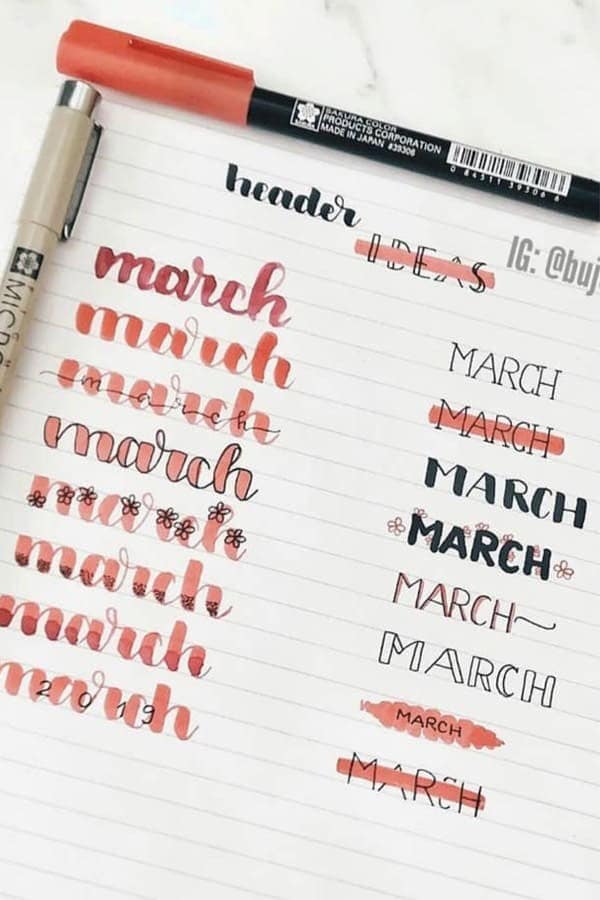 SAKURA COLOR
PRODUCTS CORPORATION
MADE IN JAPAN #39306
0 84511 39306 6
header
IDEAS
IG: @buj
march
march
march
march
march
march
march
march
march
2019
MARCH
MARCH
MARCH
MARCH
MARCH
MARCH
MARCH
MARCH